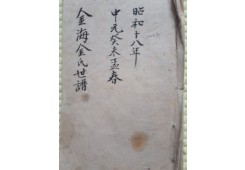 昭和十八年
中元癸未孟春
金海金氏世譜